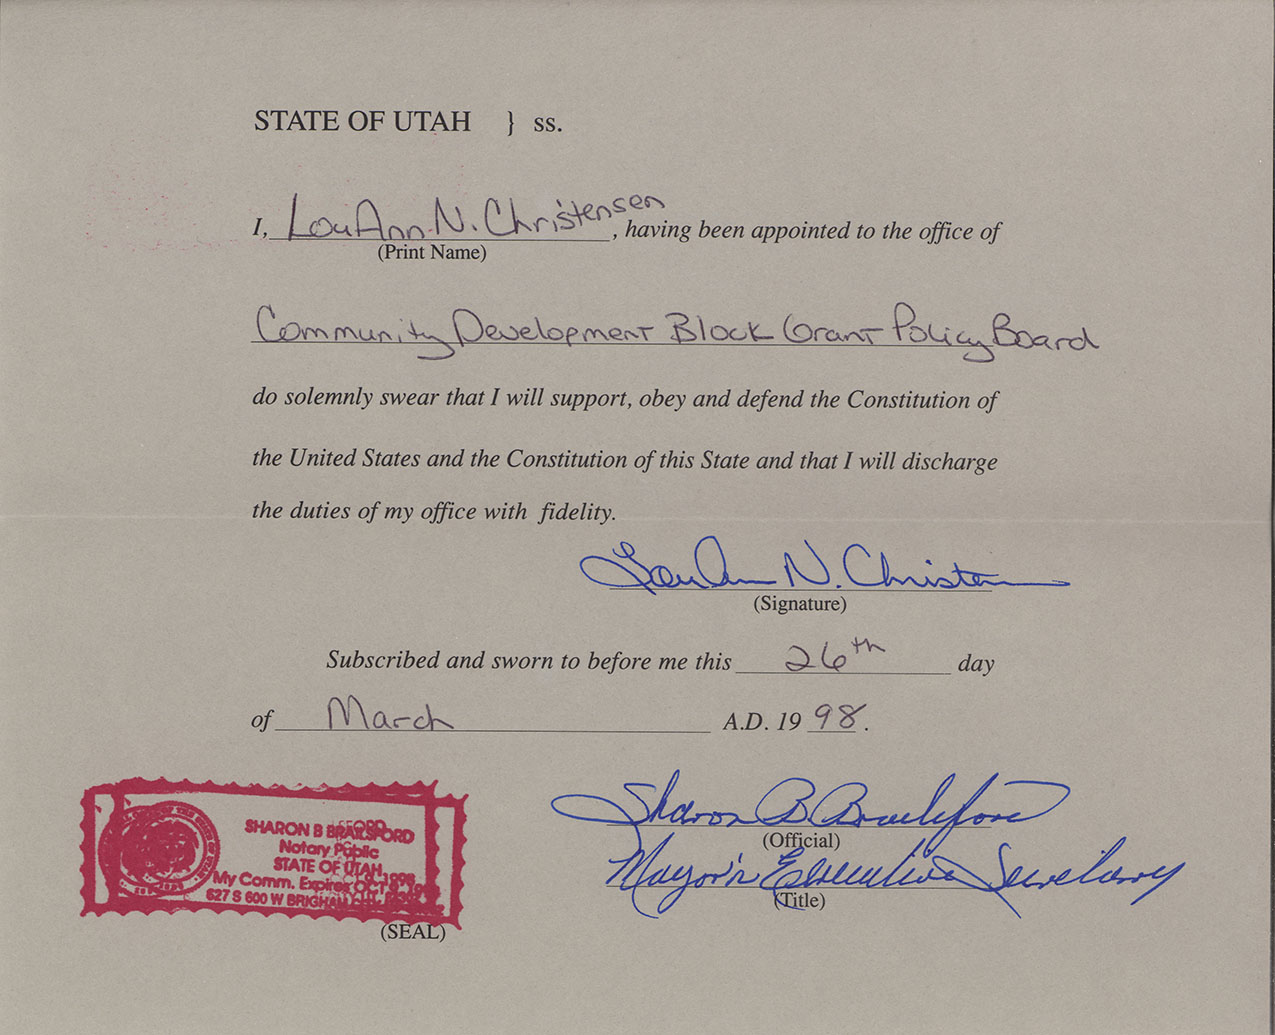 STATE OF UTAH } ss.
I, LouAnn N. Christensen, having been appointed to the office of
(Print Name)
Community Development Block Grant Policy Board
do solemnly swear that I will support, obey and defend the Constitution of
the United States and the Constitution of this State and that I will discharge
the duties of my office with fidelity.
LouAnn N. Christensen
(Signature)
Subscribed and sworn to before me this 26th day
of March A.D. 19 98.
Sharon B Brailsford
(Official)
Mayor's Executive Secretary
(Title)
SHARON B BRAILSFORD
Notary Public
STATE OF UTAH
My Comm. Expires OCT
627 S 600 W BRIGHAM
(SEAL)